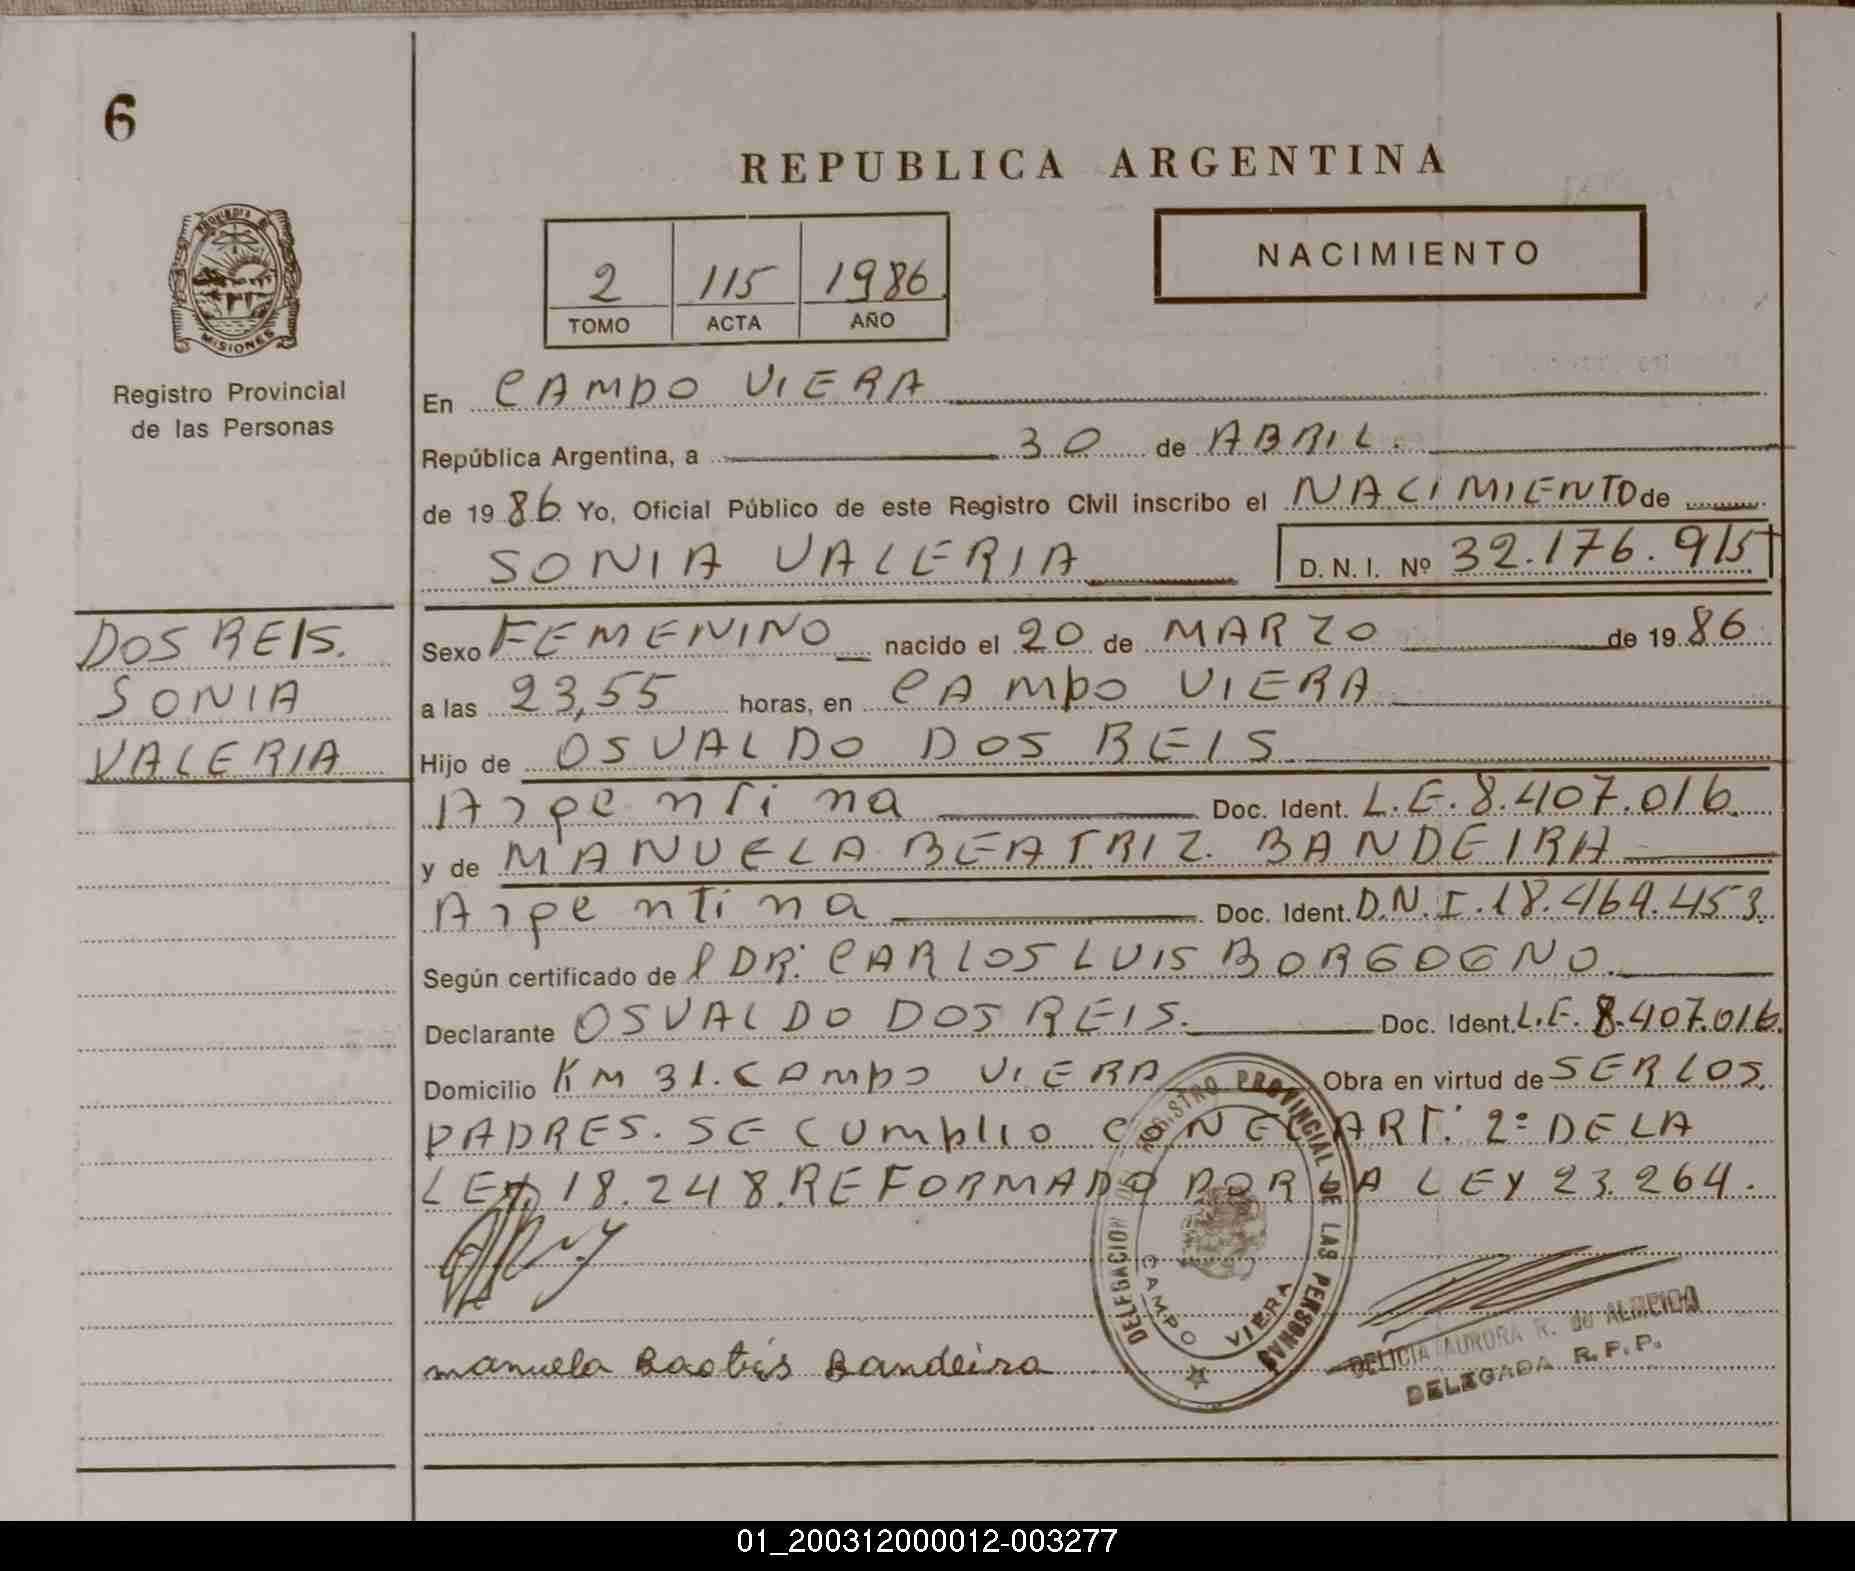 6
REPUBLICA ARGENTINA
NACIMIENTO
2 115 1986
TOMO ACTA AÑO
PROVINCIA DE
MISIONES
Registro Provincial
de las Personas
En CAMPO VIERA
República Argentina, a 30 de ABRIL.
de 1986 Yo, Oficial Público de este Registro Civil inscribo el NACIMIENTO de
SONIA VALERIA D. N. I. Nº 32.176.915
DOS REIS.
SONIA
VALERIA
Sexo FEMENINO nacido el 20 de MARZO de 1986
a las 23,55 horas, en CAMPO VIERA
Hijo de OSVALDO DOS REIS
Argentina Doc. Ident. L.E.8.407.016.
y de MANUELA BEATRIZ. BANDEIRA
Argentina Doc. Ident. D.N.I.18.464.453.
Según certificado de DR. CARLOS LUIS BORGOGNO.
Declarante OSVALDO DOS REIS. Doc. Ident. L.E. 8.407.016.
Domicilio KM 31. CAMPO VIERA Obra en virtud de SER LOS
PADRES. SE CUMPLIO CON EL ART. 2º DE LA
LEY. 18.248. REFORMADO POR LA LEY 23.264.
DELEGACION DEL REGISTRO PROVINCIAL DE LAS PERSONAS
CAMPO VIERA
manuela Bandeira
DELICIA AURORA R. de ALMEIDA
DELEGADA R. P. P.
01_200312000012-003277